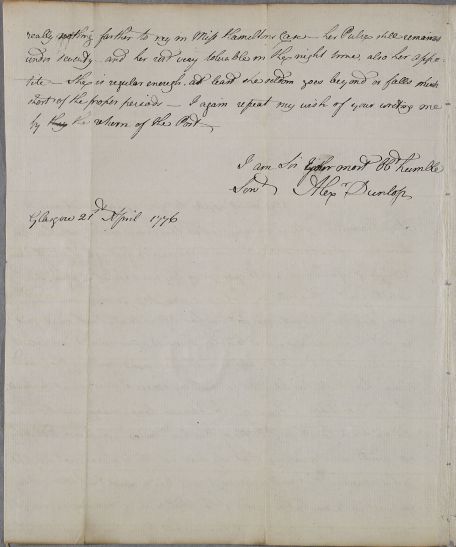 really nothing farther to say in Miss Hamiltons Case – her Pulse still remains
under seventy – and her rest very tolerable in the night time, also her appe-
tite – She is regular enough, at least she seldom goes beyond or falls much
short of the proper periods – I again repeat my wish of your writing me
by the return of the Post –
I am Sir Your most Obt humble
Servt Alexr Dunlop
Glasgow 21st April 1776